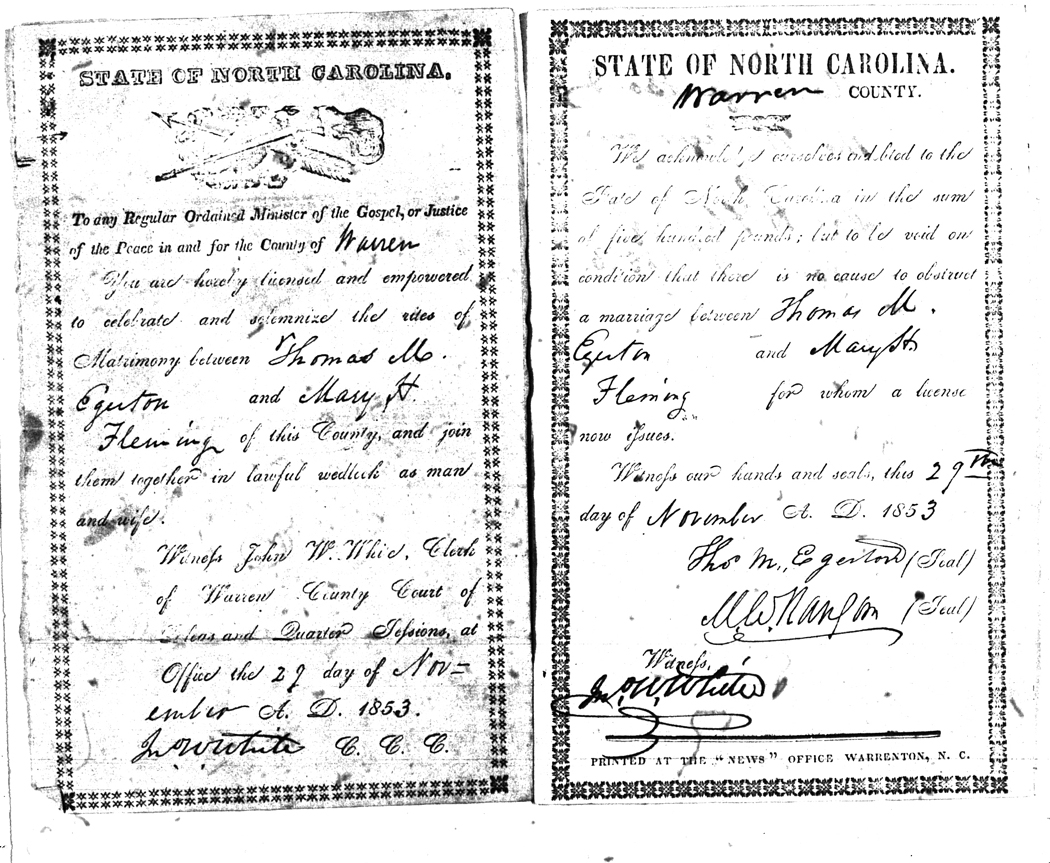 STATE OF NORTH CAROLINA.
To any Regular Ordained Minister of the Gospel, or Justice
of the Peace in and for the County of Warren
You are hereby licensed and empowered
to celebrate and solemnize the rites of
Matrimony between Thomas M.
Egerton and Mary H.
Fleming of this County, and join
them together in lawful wedlock as man
and wife.
Witness John W. White, Clerk
of Warren County Court of
Pleas and Quarter Sessions, at
Office the 29 day of Nov-
ember A. D. 1853.
Jno W White C. C. C.
STATE OF NORTH CAROLINA.
Warren COUNTY.
We acknowledge ourselves indebted to the
State of North Carolina in the sum
of five hundred pounds; but to be void on
condition that there is no cause to obstruct
a marriage between Thomas M.
Egerton and Mary H.
Fleming for whom a license
now issues.
Witness our hands and seals, this 29th
day of November A. D. 1853
Thos M. Egerton (Seal)
(Seal)
Witness,
Jno. W. White
PRINTED AT THE "NEWS" OFFICE WARRENTON, N. C.